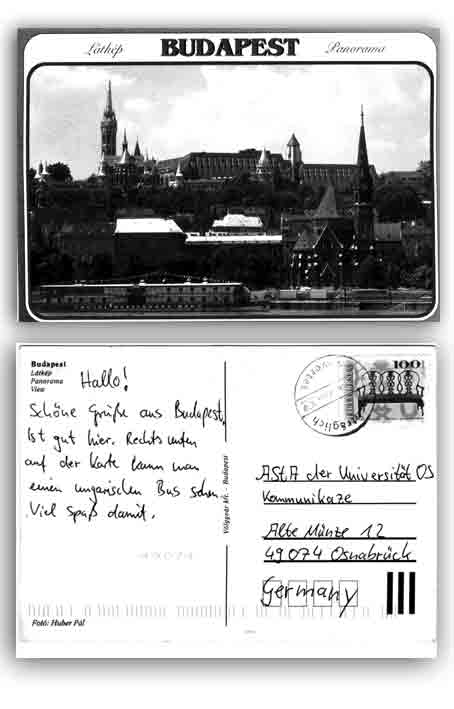 Látkép BUDAPEST Panorama
Budapest
Látkép
Panorama
View
Hallo!
Schöne Grüße aus Budapest,
Ist gut hier. Rechts unten
auf der Karte kann man
einen ungarischen Bus sehen.
Viel Spaß damit.
Fotó: Huber Pál
100
AStA der Universität OS
Kommunikaze
Alte Münze 12
49074 Osnabrück
Germany